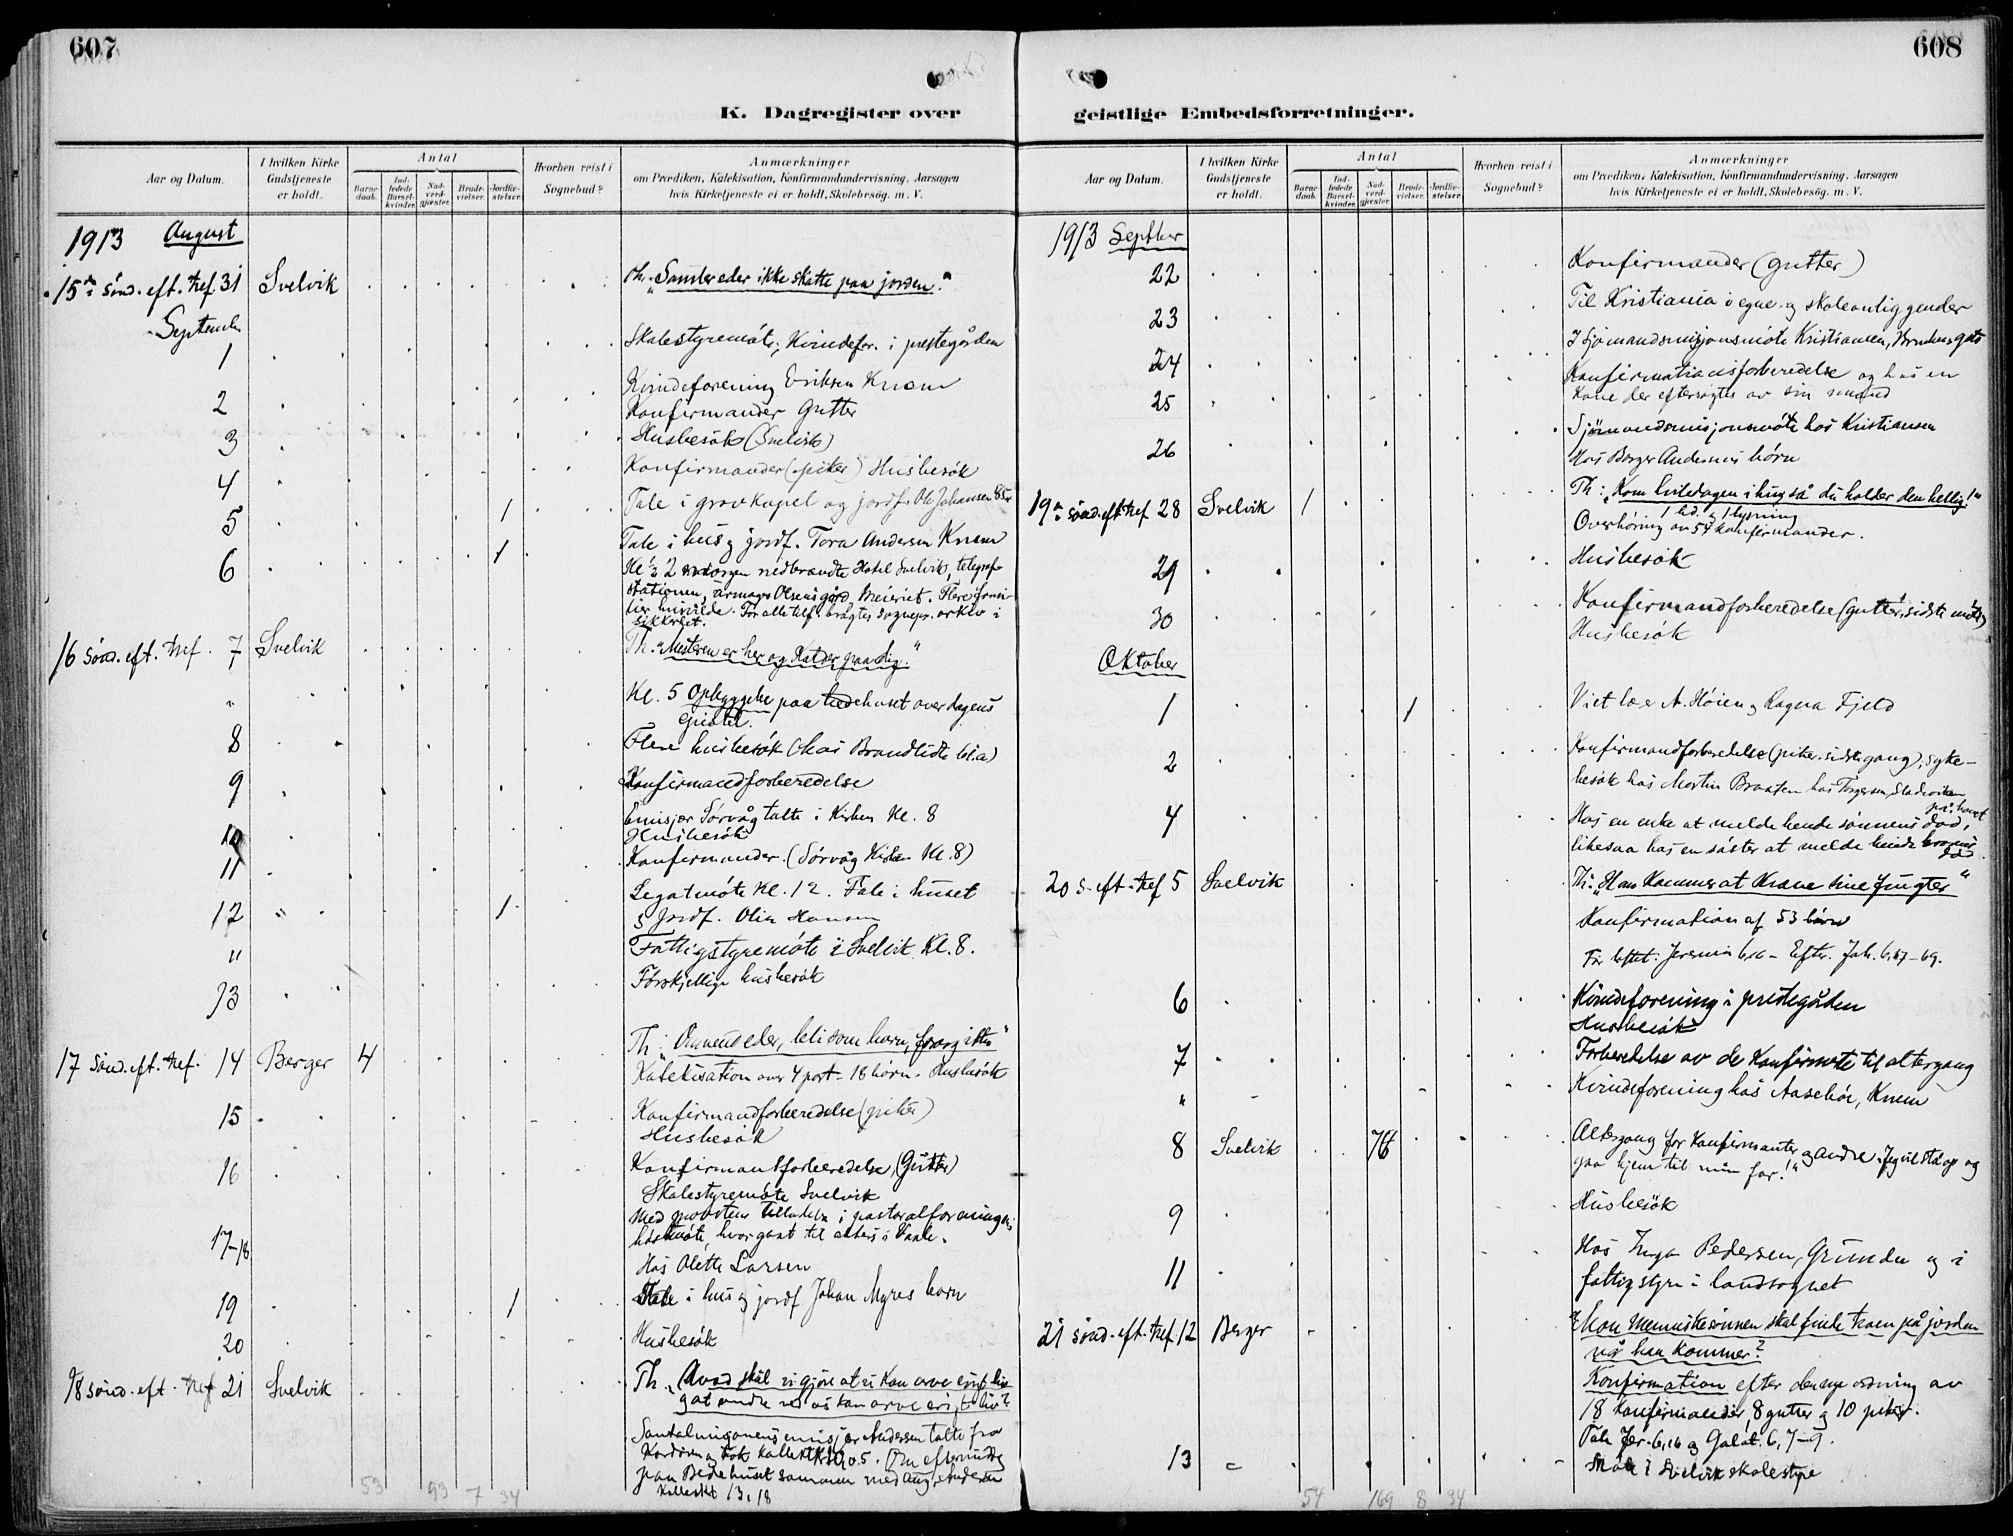 607
K. Dagregister over
Aar og Datum.
I hvilken Kirke Gudstjeneste er holdt.
Antal
Barnedaab.
Indledede Barselkvinder.
Nadverdgjæster.
Brudevielser.
Jordfæstelser.
Hvorhen reist i Sognebud?
Anmærkninger
om Prædiken, Katekisation, Konfirmandundervisning, Aarsagen
hvis Kirketjeneste ei er holdt, Skolebesøg. m. V.
1913 August
15de sönd. eft. tref. 31 Svelvik Th. "Samler eder ikke skatte paa jorden."
September
1 Skolestyremöte; Kvindefor. i prestegården
2 Kvindeforening Eriksen Knem
Konfirmander Gutter
3 Husbesök (Svelvik)
4 Konfirmander (piker) Husbesök
5 1 Tale i gravkapel og jordf. Ole Johansen 85 år
6 1 Tale i hus og jordf. Tora Andersen Knem
Kl. ½ 2 morgen nedbrændte Hotel Svelvik, telegraf-
stationen, Olsens gård, Meieriet. Flere fami-
lier husvilde. For alle tilf. bragtes sognepr. arkiv i
sikkerhet.
16 sönd. eft. tref. 7 Svelvik Th. "Mesteren er her og kalder paa dig."
" Kl. 5 Opbyggelse paa bedehuset over dagens
epistel.
8 Flere husbesök (hos Brandlidte bl.a)
9 Konfirmandforberedelse
10 Emisjær Sörvåg talte i Kirken Kl. 8
Husbesök
11 Konfirmander. (Sörvåg Kirken Kl. 8)
12 " 1 Legatmöte Kl. 12. Tale i huset
og Jordf. Olia Hansen
" Fattigstyremöte i Svelvik Kl. 8.
13 Forskjellige husbesök
17 Sönd. eft. tref. 14 Berger 4 Th: "Omvend eder, bli som barn,
Katekisation over 4 part - 18 börn. Husbesök
15 Konfirmandforberedelse (piker)
Husbesök
16 Konfirmantforberedelse, (Gutter)
Skolestyremöte Svelvik
17-18 Med provstens tilladelse i pastoralforeningens
höstmöte, hvor gaat til alters i Vaale.
Hos Olette Larsen
19 1 Tale i hus og jordf Johan Myres barn
20 Husbesök
18 sönd. eft. tref 21 Svelvik Th. "Hvad skal vi gjöre at vi kan arve evigt liv
og at andre ved os kan arve evigt liv?
Santalmisjonens emisjær Andersen talte fra
Kordören og tok kollekt Om eftermiddag
paa Bedehuset sammen med Aug. Andersen
Kollekt 13.18
53 93 7 34
608
geistlige Embedsforretninger.
Aar og Datum.
I hvilken Kirke Gudstjeneste er holdt.
Antal
Barnedaab.
Indledede Barselkvinder.
Nadverdgjæster.
Brudevielser.
Jordfæstelser.
Hvorhen reist i Sognebud?
Anmærkninger
om Prædiken, Katekisation, Konfirmandundervisning, Aarsagen
hvis Kirketjeneste ei er holdt, Skolebesög. m. V.
1913 Septber
22 Konfirmander (gutter)
23 Til Kristiania i egne og skoleanliggender
24 I Sjömandsmisjonsmöte Kristiansen,
25 Konfirmationsforberedelse og hos en
Kone der eftersögtes av sin mand
26 Sjömandsmisjonsmöte hos Kristiansen
Hos Borger Andersens börn
19de sönd. eft tref 28 Svelvik 1 Th: "Kom hviledagen ihug så du holder den hellig!"
1 bd. og 1 lysning
Overhöring av 54 konfirmander.
29 Husbesök
30 Konfirmandforberedelse (gutter, sidste möte)
Husbesök
Oktober
1 1 Viet A. Höien og Ragna Fjeld
2 Konfirmandforberedelse (piker. sidste gang), syke-
besök hos Martin Braaten hos Torgersen,
4 Hos en enke at melde hende sönnens död, på havet
likesaa hos en söster at melde hende brorens död
20 s. eft. tref 5 Svelvik Th: "Han kommer at kræve sine frugter"
Konfirmation af 53 börn
Før löftet: Jeremias 6,16 - Efter. Joh. 6,67-69.
6 Kvindeforening i prestegården
Husbesök
7 Forberedelse av de Konfirmerte til altergang
" Kvindeforening hos Aasebøe, Knem
8 Svelvik 76 Altergang for Konfirmanter og andre. "Jeg vil stå op og
gaa hjem til min far!"
9 Husbesök
11 Hos Inga Pedersen, Grunde og i
fattigstyre i landsognet
21 sönd. eft. tref. 12 Berger "Mon Menneskesönnen skal finde troen på jorden
når han kommer?
Konfirmation efter den nye ordning av
18 Konfirmander, 8 gutter og 10 piker.
Tale Jer. 6,16 og Galat. 6, 7-9.
13 Möte i Svelvik skolestyre
54 169 8 34